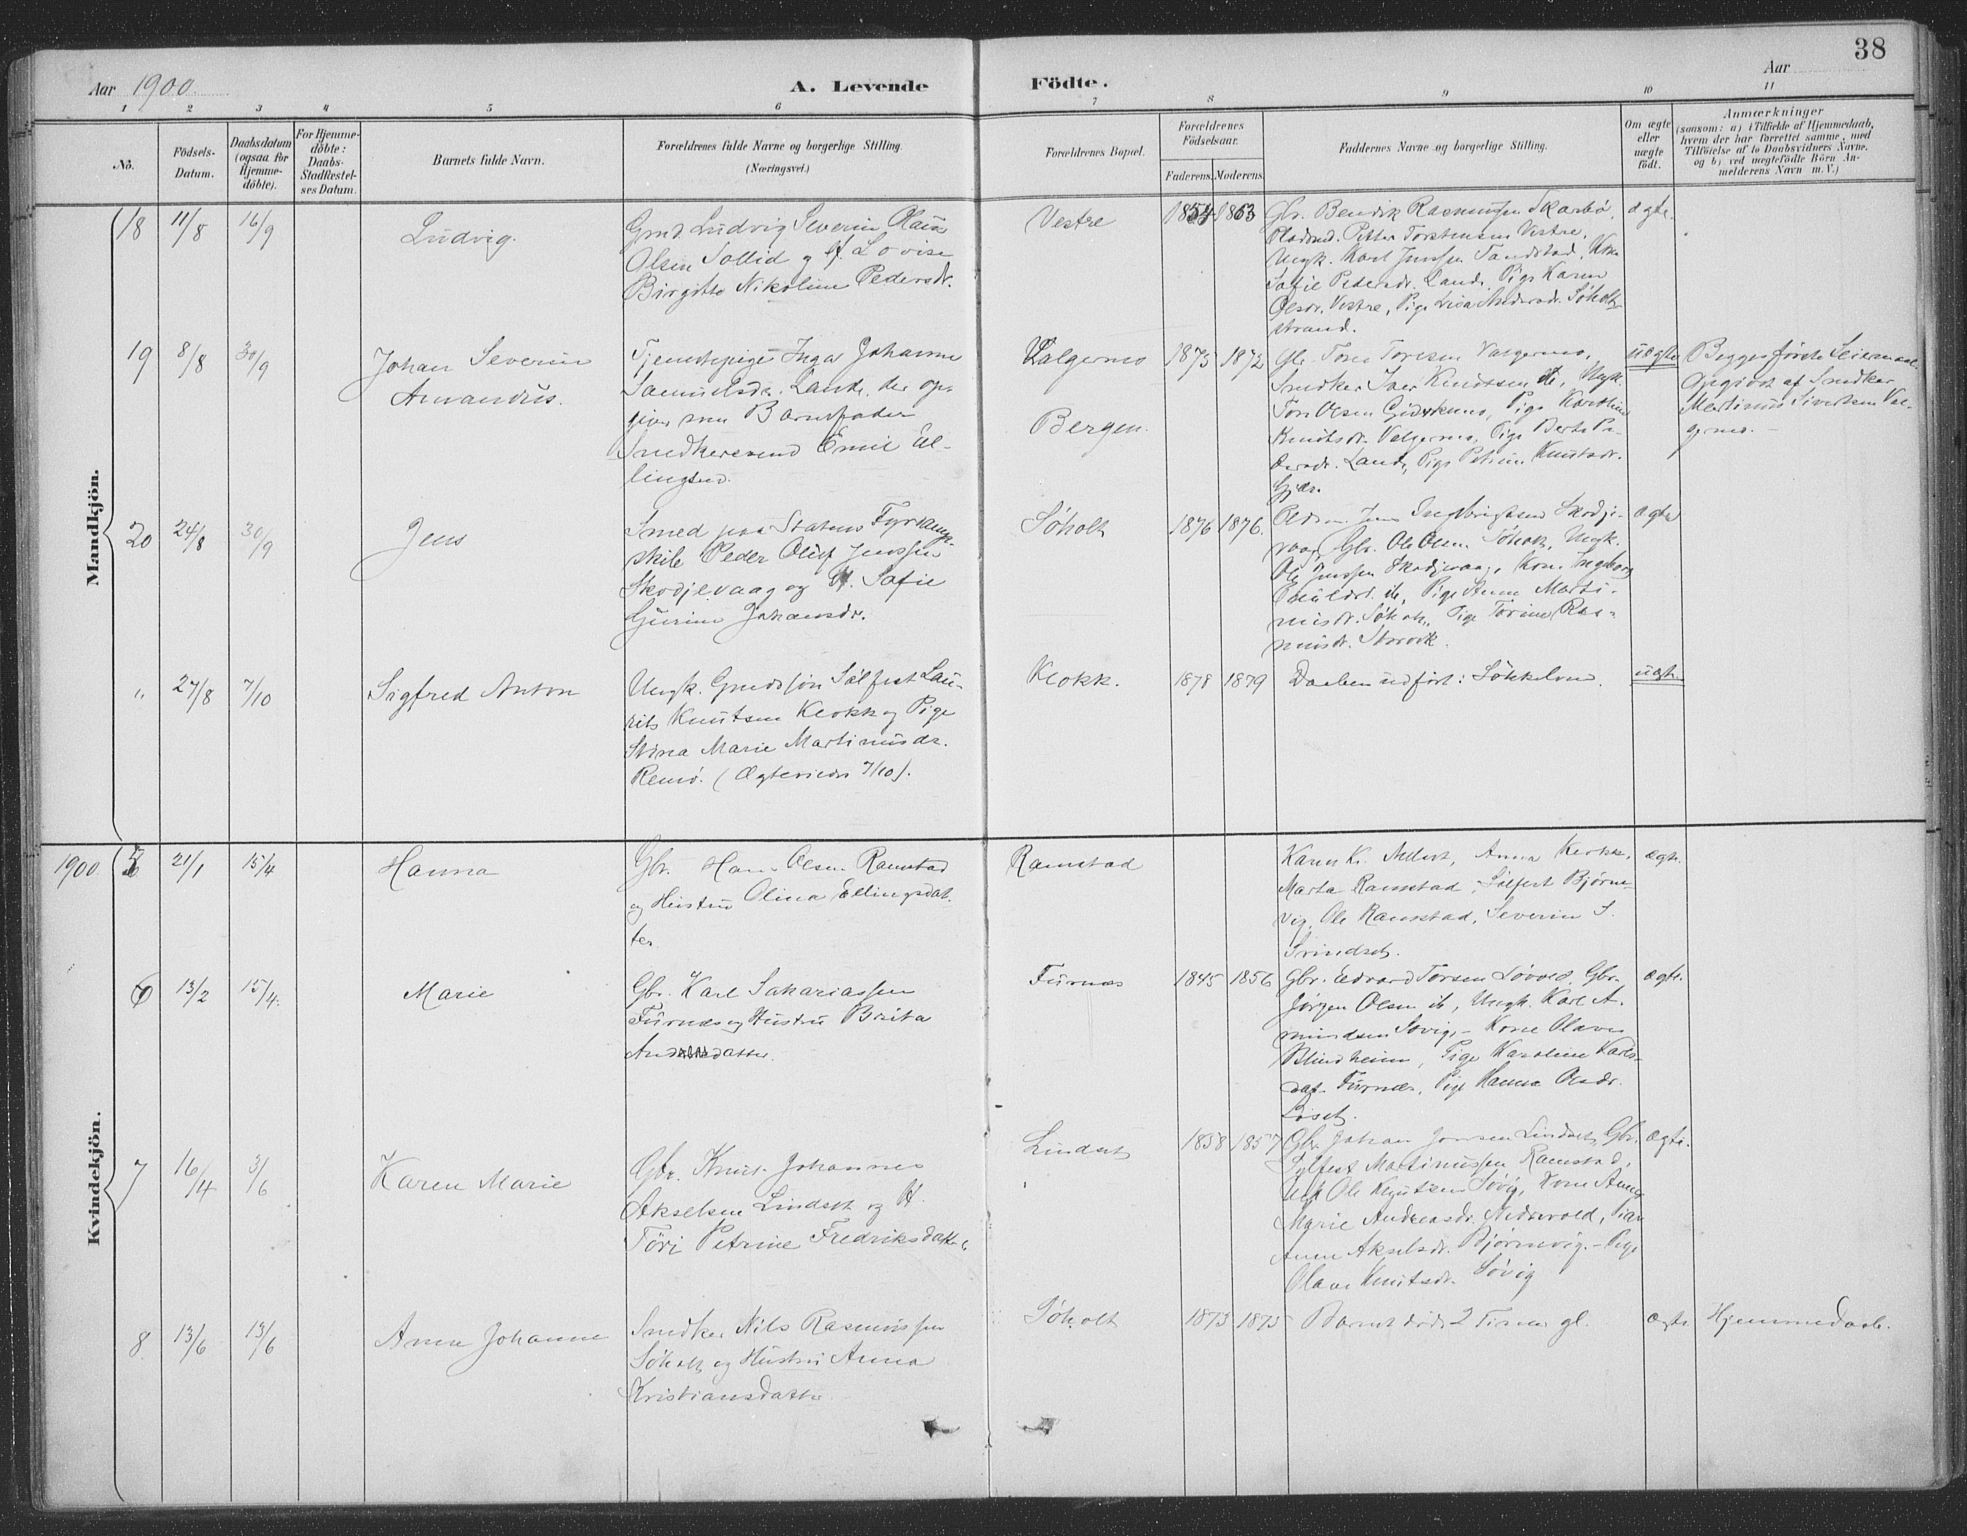 38
Aar 1900
A. Levende Födte.
Aar
1 2 3 4 5 6 7 8 9 10 11
No.
Födsels-
Datum.
Daabsdatum
(ogsaa for
Hjemme-
döbte).
For Hjemme-
döbte:
Daabs-
Stadfæstel-
ses Datum.
Barnets fulde Navn.
Forældrenes fulde Navne og borgerlige Stilling.
(Næringsvei.)
Forældrenes Bopæl.
Forældrenes
Födselsaar.
Faderens. Moderens.
Faddernes Navne og borgerlige Stilling.
Om ægte
eller
uægte
födt.
Anmærkninger
(saasom: a) i Tilfælde af Hjemmedaab,
hvem der har forrettet samme, med
Tilföielse af to Daabsvidners Navne.
og b) ved uægtefödte Börn An-
melderens Navn m. V.)
Mandkjön.
18 11/8 16/9
Ludvig.
Gmd. Ludvig Severin Olaus
Olsen Sollid og H. Lovise
Birgitte Nikoline Pedersdr.
Vestre
1854 1863
Gbr. Bendik Rasmussen Skarbö,
Pladsmd. Petter Torstensen Vestre,
Ungk. Karl Jensen Tandstad, Kone
Sofie Pedersdr. Lande, Pige Karen
Olsdr. Vestre, Pige Lisa Andersdr. Søholt-
strand.
ægte
19 8/8 30/9
Johan Severin
Amandus.
Tjenestepige Inga Johanne
Samuelsdr. Lande, der op-
giver som Barnefader
Snedkersvend Emil El-
lingsen.
Valgernes
Bergen.
1875 1872
Gbr. Tore Toresen Valgernes,
Snedker Iver Knutsen ib, Ungk.
Tore Olsen Gjerknes, Pige Karoline
Knutsdr. Valgernes, Pige Berte Pe-
dersdr. Lande, Pige Petrine Knutsdr.
Gjære
uægte
Begges første Leiermaal
Opgivet af Snedker
Martinus Sivertsen Val-
gernes. -
20 24/8 30/9
Jens
Smed paa Statens Fyrvæsen
Peder Oluf Jensen
Skodjevaag og H. Sofie
Gurine Johansdr.
Søholt
1876 1876.
Jens Ingebrigtsen Skodje-
vaag, Gbr. Ole Olsen Søholt, Ungk.
Ole Jenssen Skodjevaag, Kone Ingeborg
ib, Pige Anne Marti-
nusdr. Søholt, Pige Torine Ras-
musdr. Storvik.
ægte
" 27/8 7/10
Sigfred Anton
Ungk. Gaardssøn Sølfest Lau-
rits Knutsen Klokk og Pige
Stina Marie Martinusdr.
Remø. (Ægteviedes 7/10).
Klokk.
1878 1879
Daaben udført i Søkkelven.
uægte
Kvindekjön.
1900 5 21/1 15/4
Hanna
Gbr. Hans Olsen Ramstad
og Hustru Olina Ellingsdat-
ter
Ramstad
Karen K. Myhre, Anna Klokk,
Marta Ramstad, Sølfest Bjørne-
vig, Ole Ramstad, Severin S.
Svindset.
ægte
6 13/2 15/4.
Marie
Gbr. Karl Sakariassen
Furnes og Hustru Brita
Andersdatter.
Furnæs
1845 1856
Gbr. Edvard Torsen Løvold, Gbr.
Jørgen Olsen ib, Ungk. Karl A-
mundsen Søvig, - Kone Olave
Blindheim, Pige Karoline Karls-
dat. Furnæs, Pige Hanna Olsdr.
Liset.
ægte
7 16/4 3/6
Karen Marie
Gbr. Knut Johannes
Akselsen Lindset og H.
Töri Petrine Fredriksdatter
Lindset
1858 1857
Gbr. Johan Jonsen Lindset, Gbr.
Sylfest Martinussen Ramstad,
Ungk Ole Knutsen Søvig, Kone Anne
Marie Andreasdr. Nedrevold, Pige
Anne Akselsdr. Bjørnevig. - Pige
Olave Knutsdr. Søvig
ægte.
8 13/6 13/6
Anna Johanne
Snedker Nils Rasmussen
Søholt og Hustru Anna
Kristiansdatter
Søholt
1873 1875
Barnet døde 2 Timer gl.
ægte
Hjemmedaab.